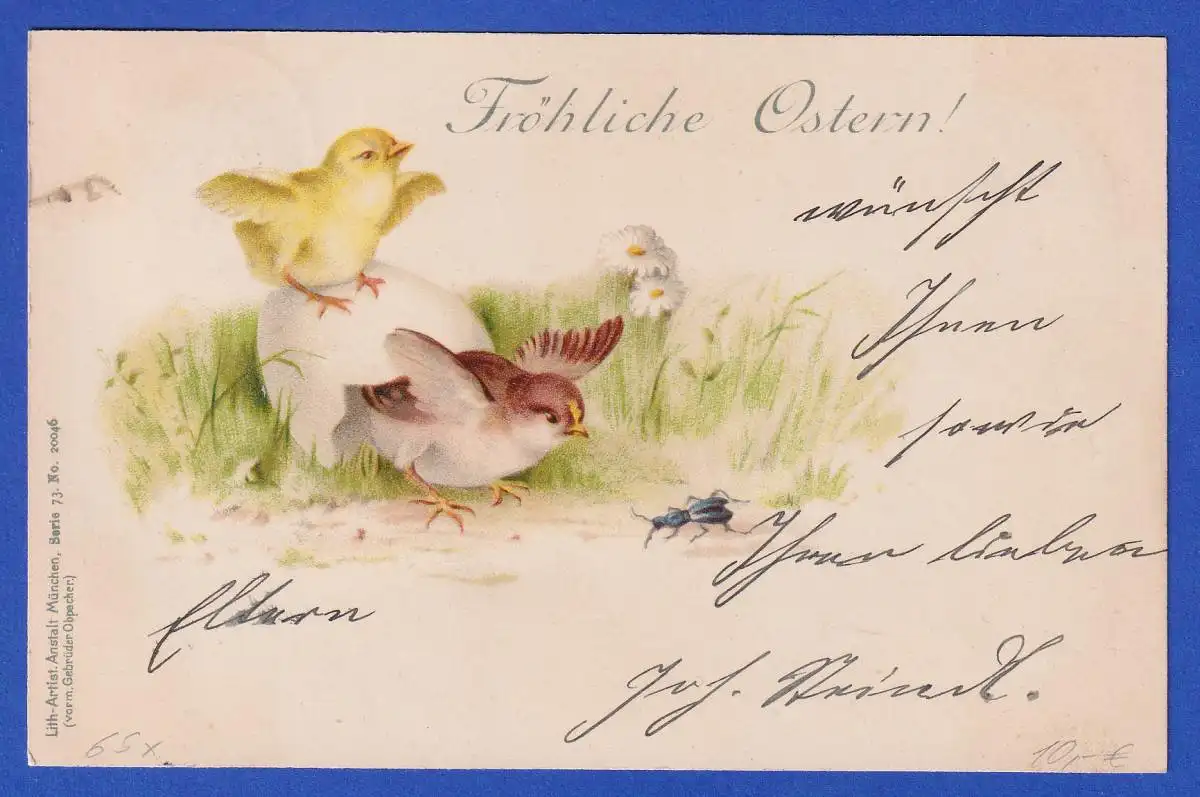 Fröhliche Ostern!
wünscht
Ihnen
sowie
Ihren lieben
Eltern
Joh.
Lith-Artist. Anstalt München, Serie 73. No. 20046
(vorm. Gebrüder Obpacher.)
65x
10,- €